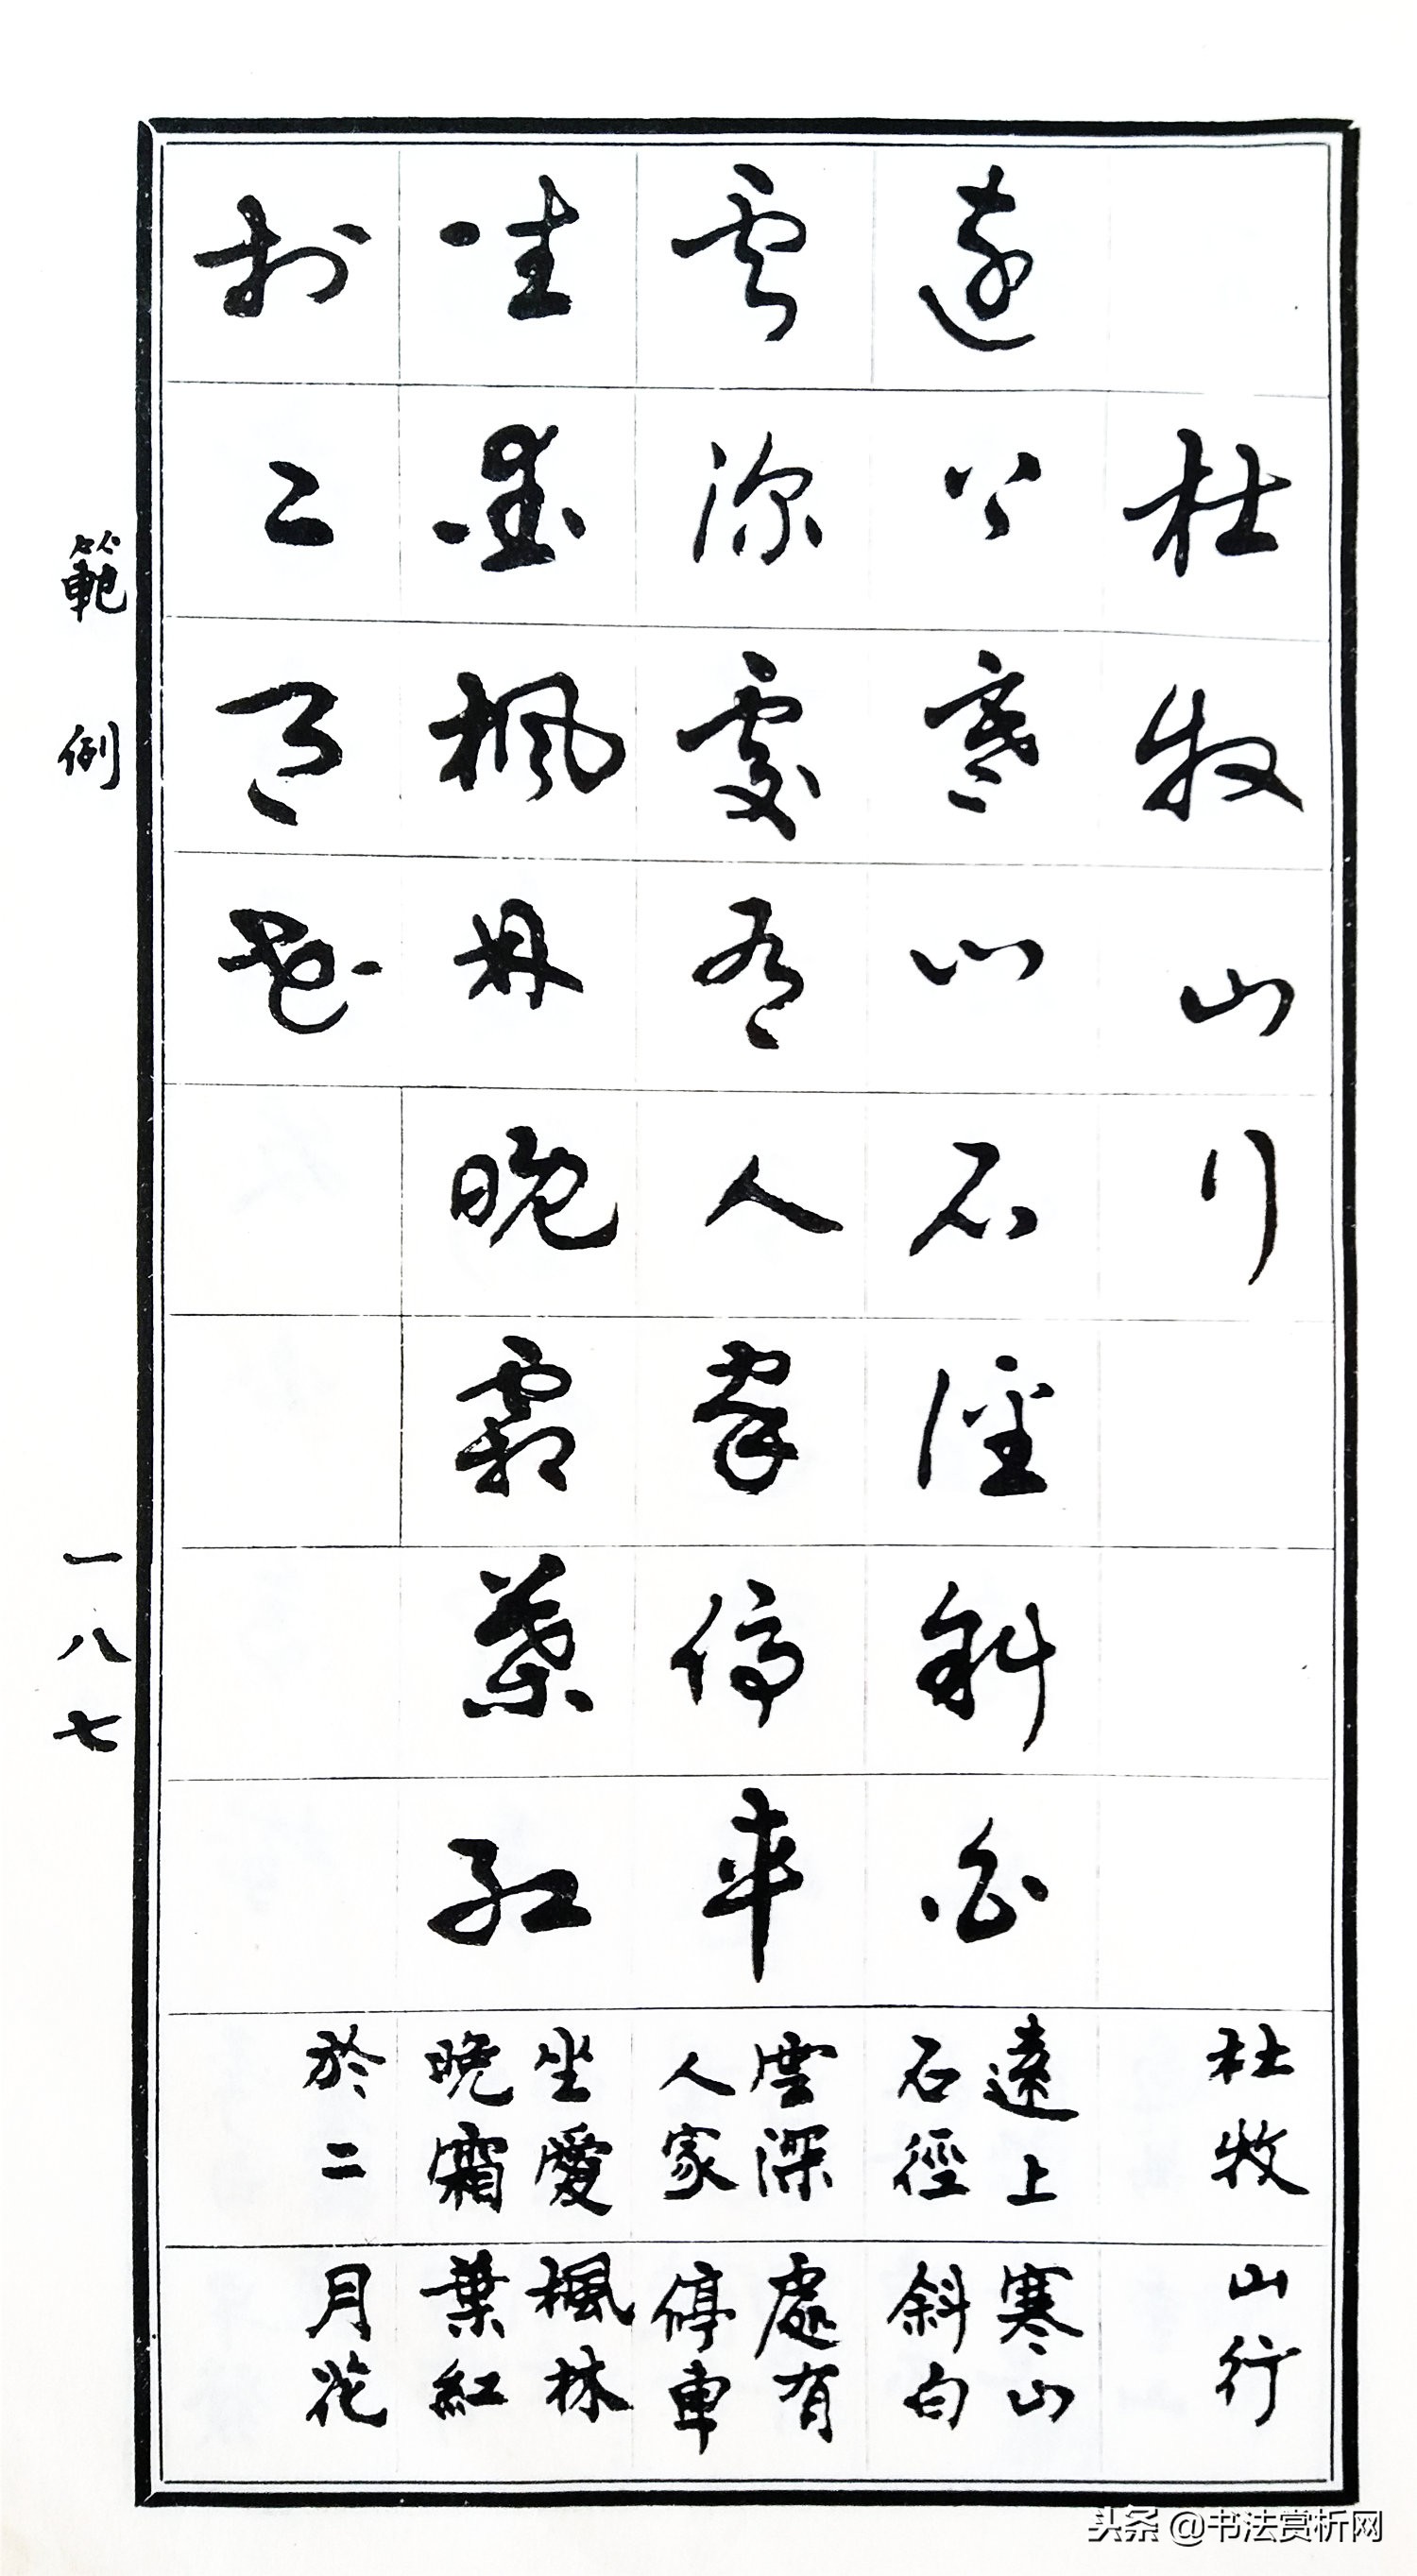 杜牧山行
遠上寒山石徑斜白
雲深處有人家停車
坐愛楓林晚霜葉紅
於二月花
杜牧
山行
遠上
石徑
寒山
斜白
雲深
人家
處有
停車
坐愛
晚霜
楓林
葉紅
於二
月花
範例
一八七
头条 @书法赏析网